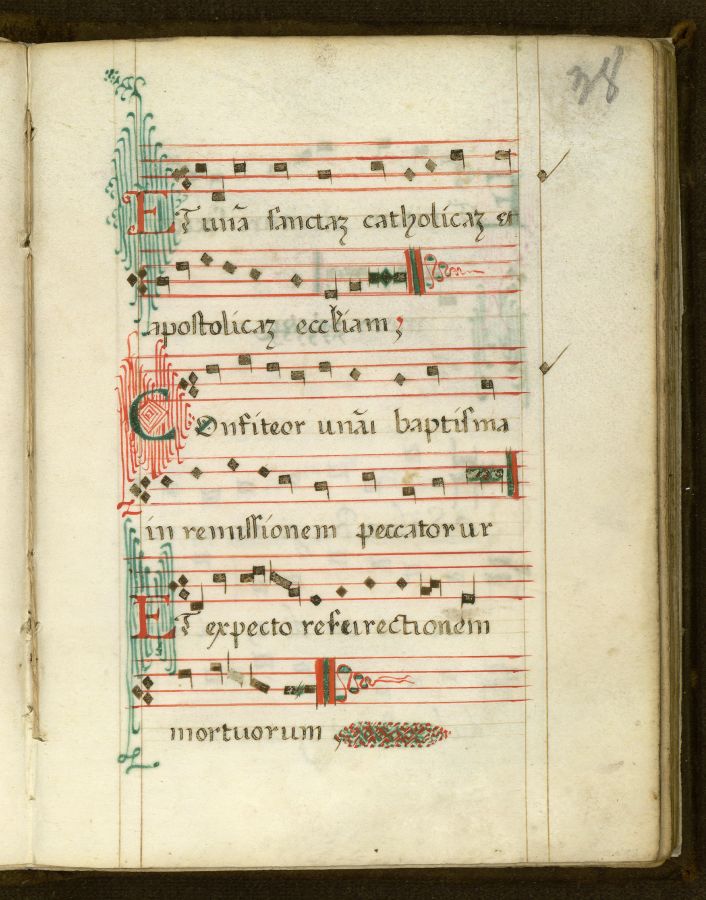 38
ET unã sanctaʒ catholicaʒ et
apostolicaʒ eccɫiam;
COnfiteor unãı baptisma
in remissionem peccatorur
ET expecto resurrectionem
mortuorum